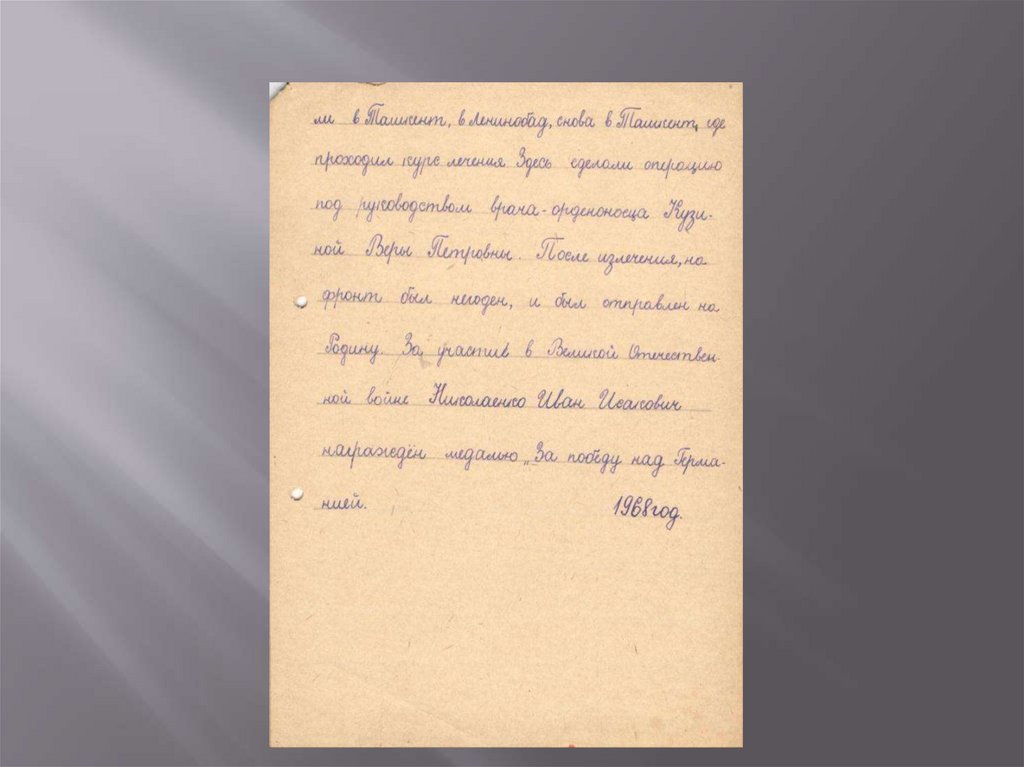 ли в Ташкент, в Ленинобад, снова в Ташкент, где
проходил курс лечения Здесь сделали операцию
под руководством врача-орденоносца Кузи-
ной Веры Петровны. После излечения, на
фронт был негоден, и был отправлен на
Родину. За участие в Великой Отечествен-
ной войне Николаенко Иван Исакович
награждён медалью „За победу над Герма-
нией.
1968 год.